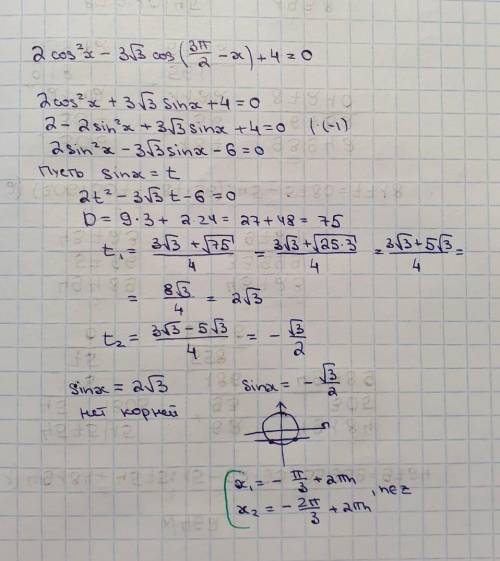 2cos²x − 3√3 cos(3π/2 − x) + 4 = 0
2cos²x + 3√3 sinx + 4 = 0
2 − 2sin²x + 3√3 sinx + 4 = 0 (·(-1)
2sin²x − 3√3 sinx − 6 = 0
Пусть sinx = t
2t² − 3√3 t − 6 = 0
D = 9·3 + 2·24 = 27 + 48 = 75
t₁ = (3√3 + √75)/4 = (3√3 + √(25·3))/4 = (3√3 + 5√3)/4 =
= 8√3/4 = 2√3
t₂ = (3√3 − 5√3)/4 = − √3/2
sinx = 2√3 sinx = − √3/2
нет корней
x₁ = − π/3 + 2πn
x₂ = − 2π/3 + 2πn , n∈z